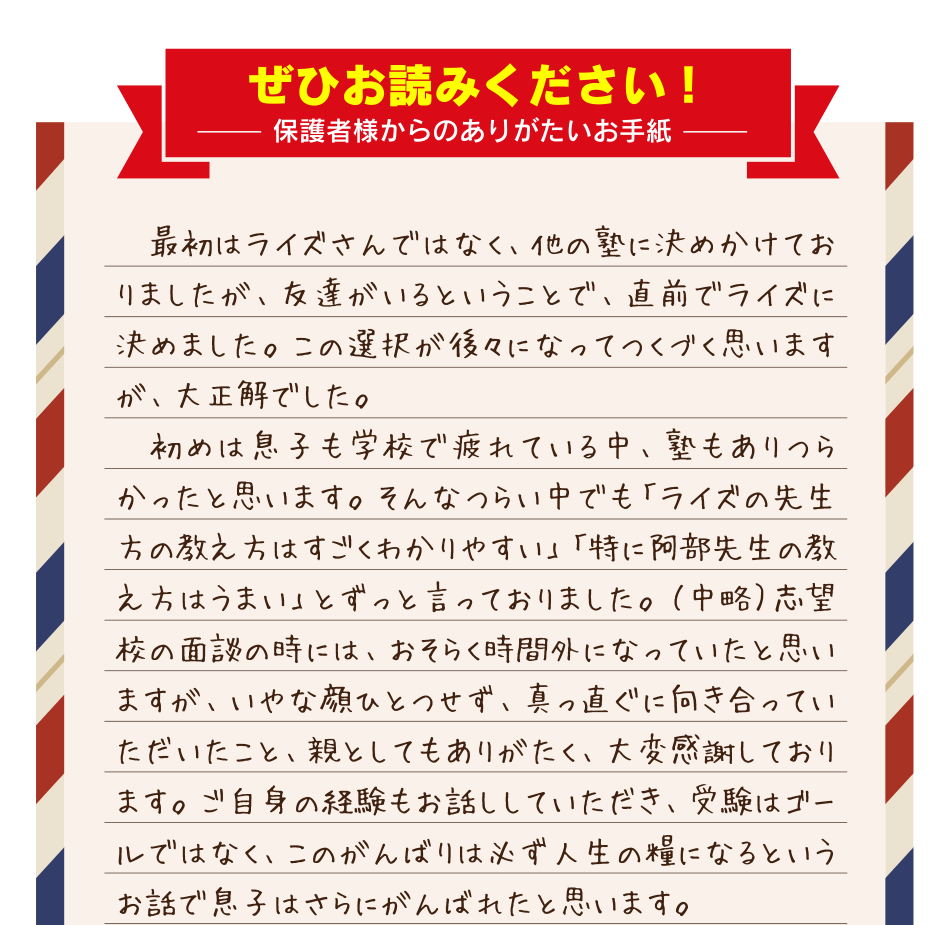 ぜひお読みください！
保護者様からのありがたいお手紙
最初はライズさんではなく、他の塾に決めかけてお
りましたが、友達がいるということで、直前でライズに
決めました。この選択が後々になってつくづく思います
が、大正解でした。
初めは息子も学校で疲れている中、塾もありつら
かったと思います。そんなつらい中でも「ライズの先生
方の教え方はすごくわかりやすい」「特に阿部先生の教
え方はうまい」とずっと言っておりました。(中略)志望
校の面談の時には、おそらく時間外になっていたと思い
ますが、いやな顔ひとつせず、真っ直ぐに向き合ってい
ただいたこと、親としてもありがたく、大変感謝しており
ます。ご自身の経験もお話ししていただき、受験はゴー
ルではなく、このがんばりは必ず人生の糧になるという
お話で息子はさらにがんばれたと思います。